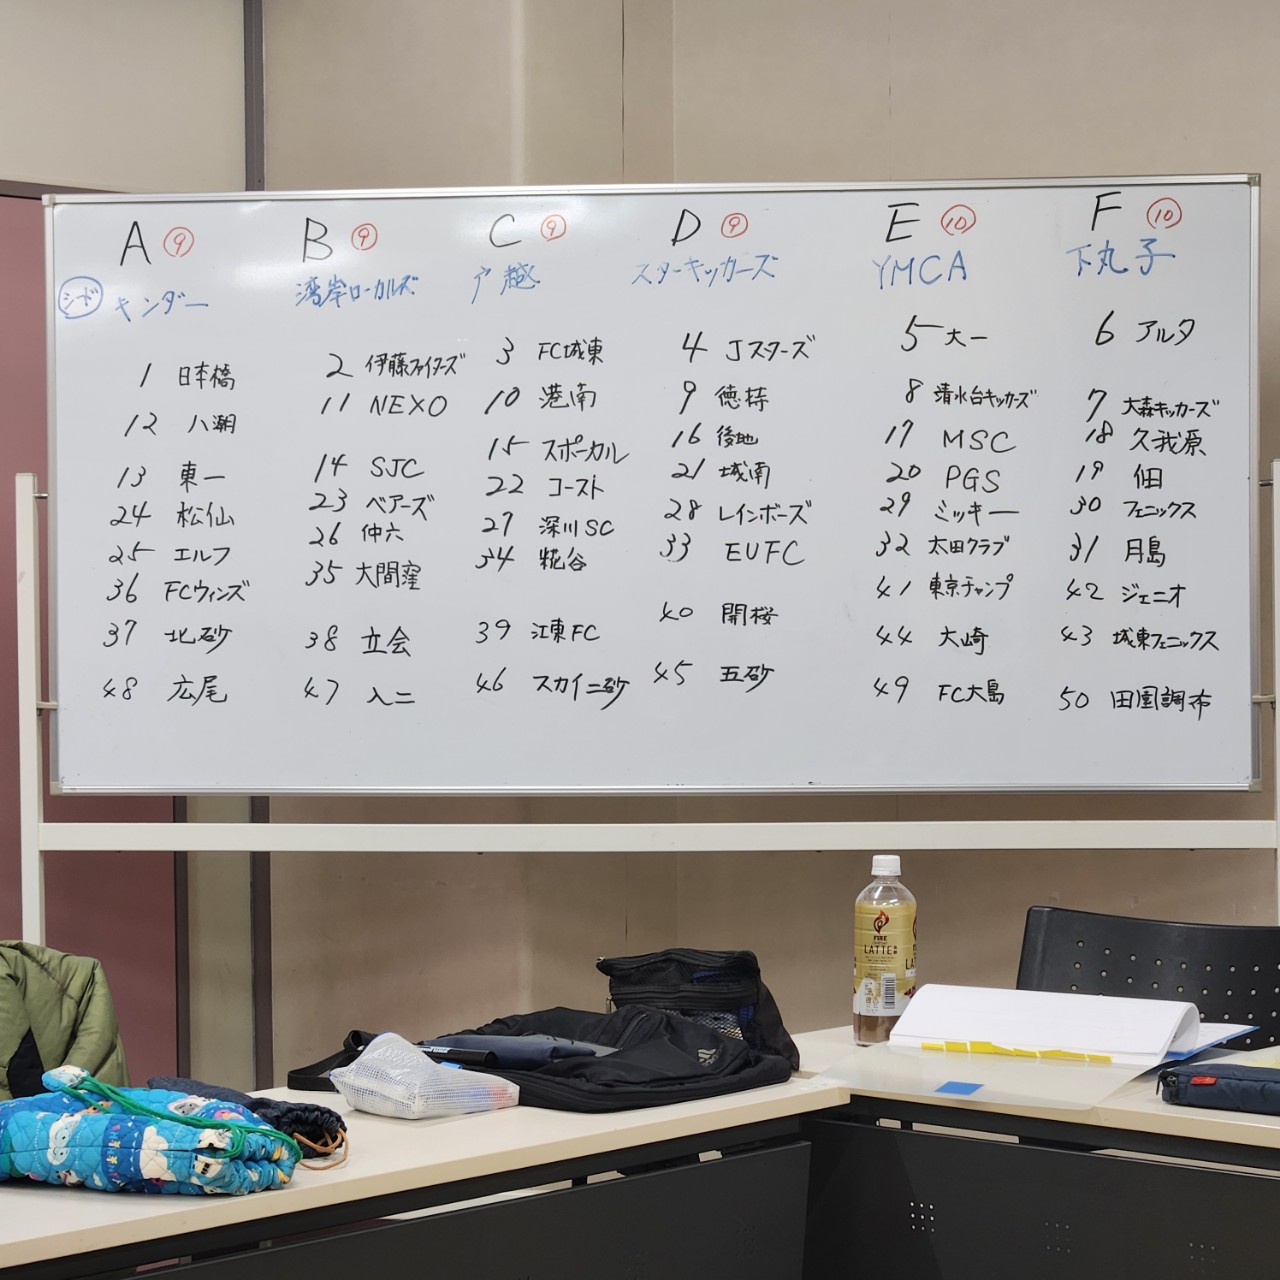 A ⑨ B ⑨ C ⑨ D ⑨ E ⑩ F ⑩
シード キンダー 湾岸ローカルズ 戸越 スターキッカーズ YMCA 下丸子
1 日本橋 2 伊藤ファイターズ 3 FC城東 4 Jスターズ 5 大一 6 アルタ
12 八潮 11 NEXO 10 港南 9 徳持 8 清水台キッカーズ 7 大森キッカーズ
13 東一 14 SJC 15 スポーカル 16 後地 17 MSC 18 久我原
24 松仙 23 ベアーズ 22 コースト 21 城南 20 PGS 19 佃
25 エルフ 26 仲六 27 深川SC 28 レインボーズ 29 ミッキー 30 フェニックス
36 FCウィンズ 35 大間窪 34 糀谷 33 EUFC 32 太田クラブ 31 月島
37 北砂 38 立会 39 江東FC 40 開桜 41 東京チャンプ 42 ジェニオ
48 広尾 47 入二 46 スカイ二砂 45 五砂 44 大崎 43 城東フェニックス
49 FC大島 50 田園調布
FIRE
LATTE